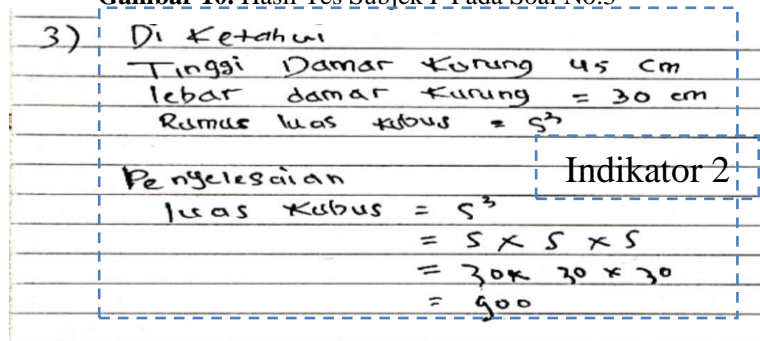 Gambar 10. Hasil Tes Subjek P Pada Soal No.3
3) Di Ketahui
Tinggi Damar Kurung 45 cm
lebar damar Kurung = 30 cm
Rumus luas kubus = s³
Indikator 2
Penyelesaian
luas Kubus = s³
= s × s × s
= 30 × 30 × 30
= 900